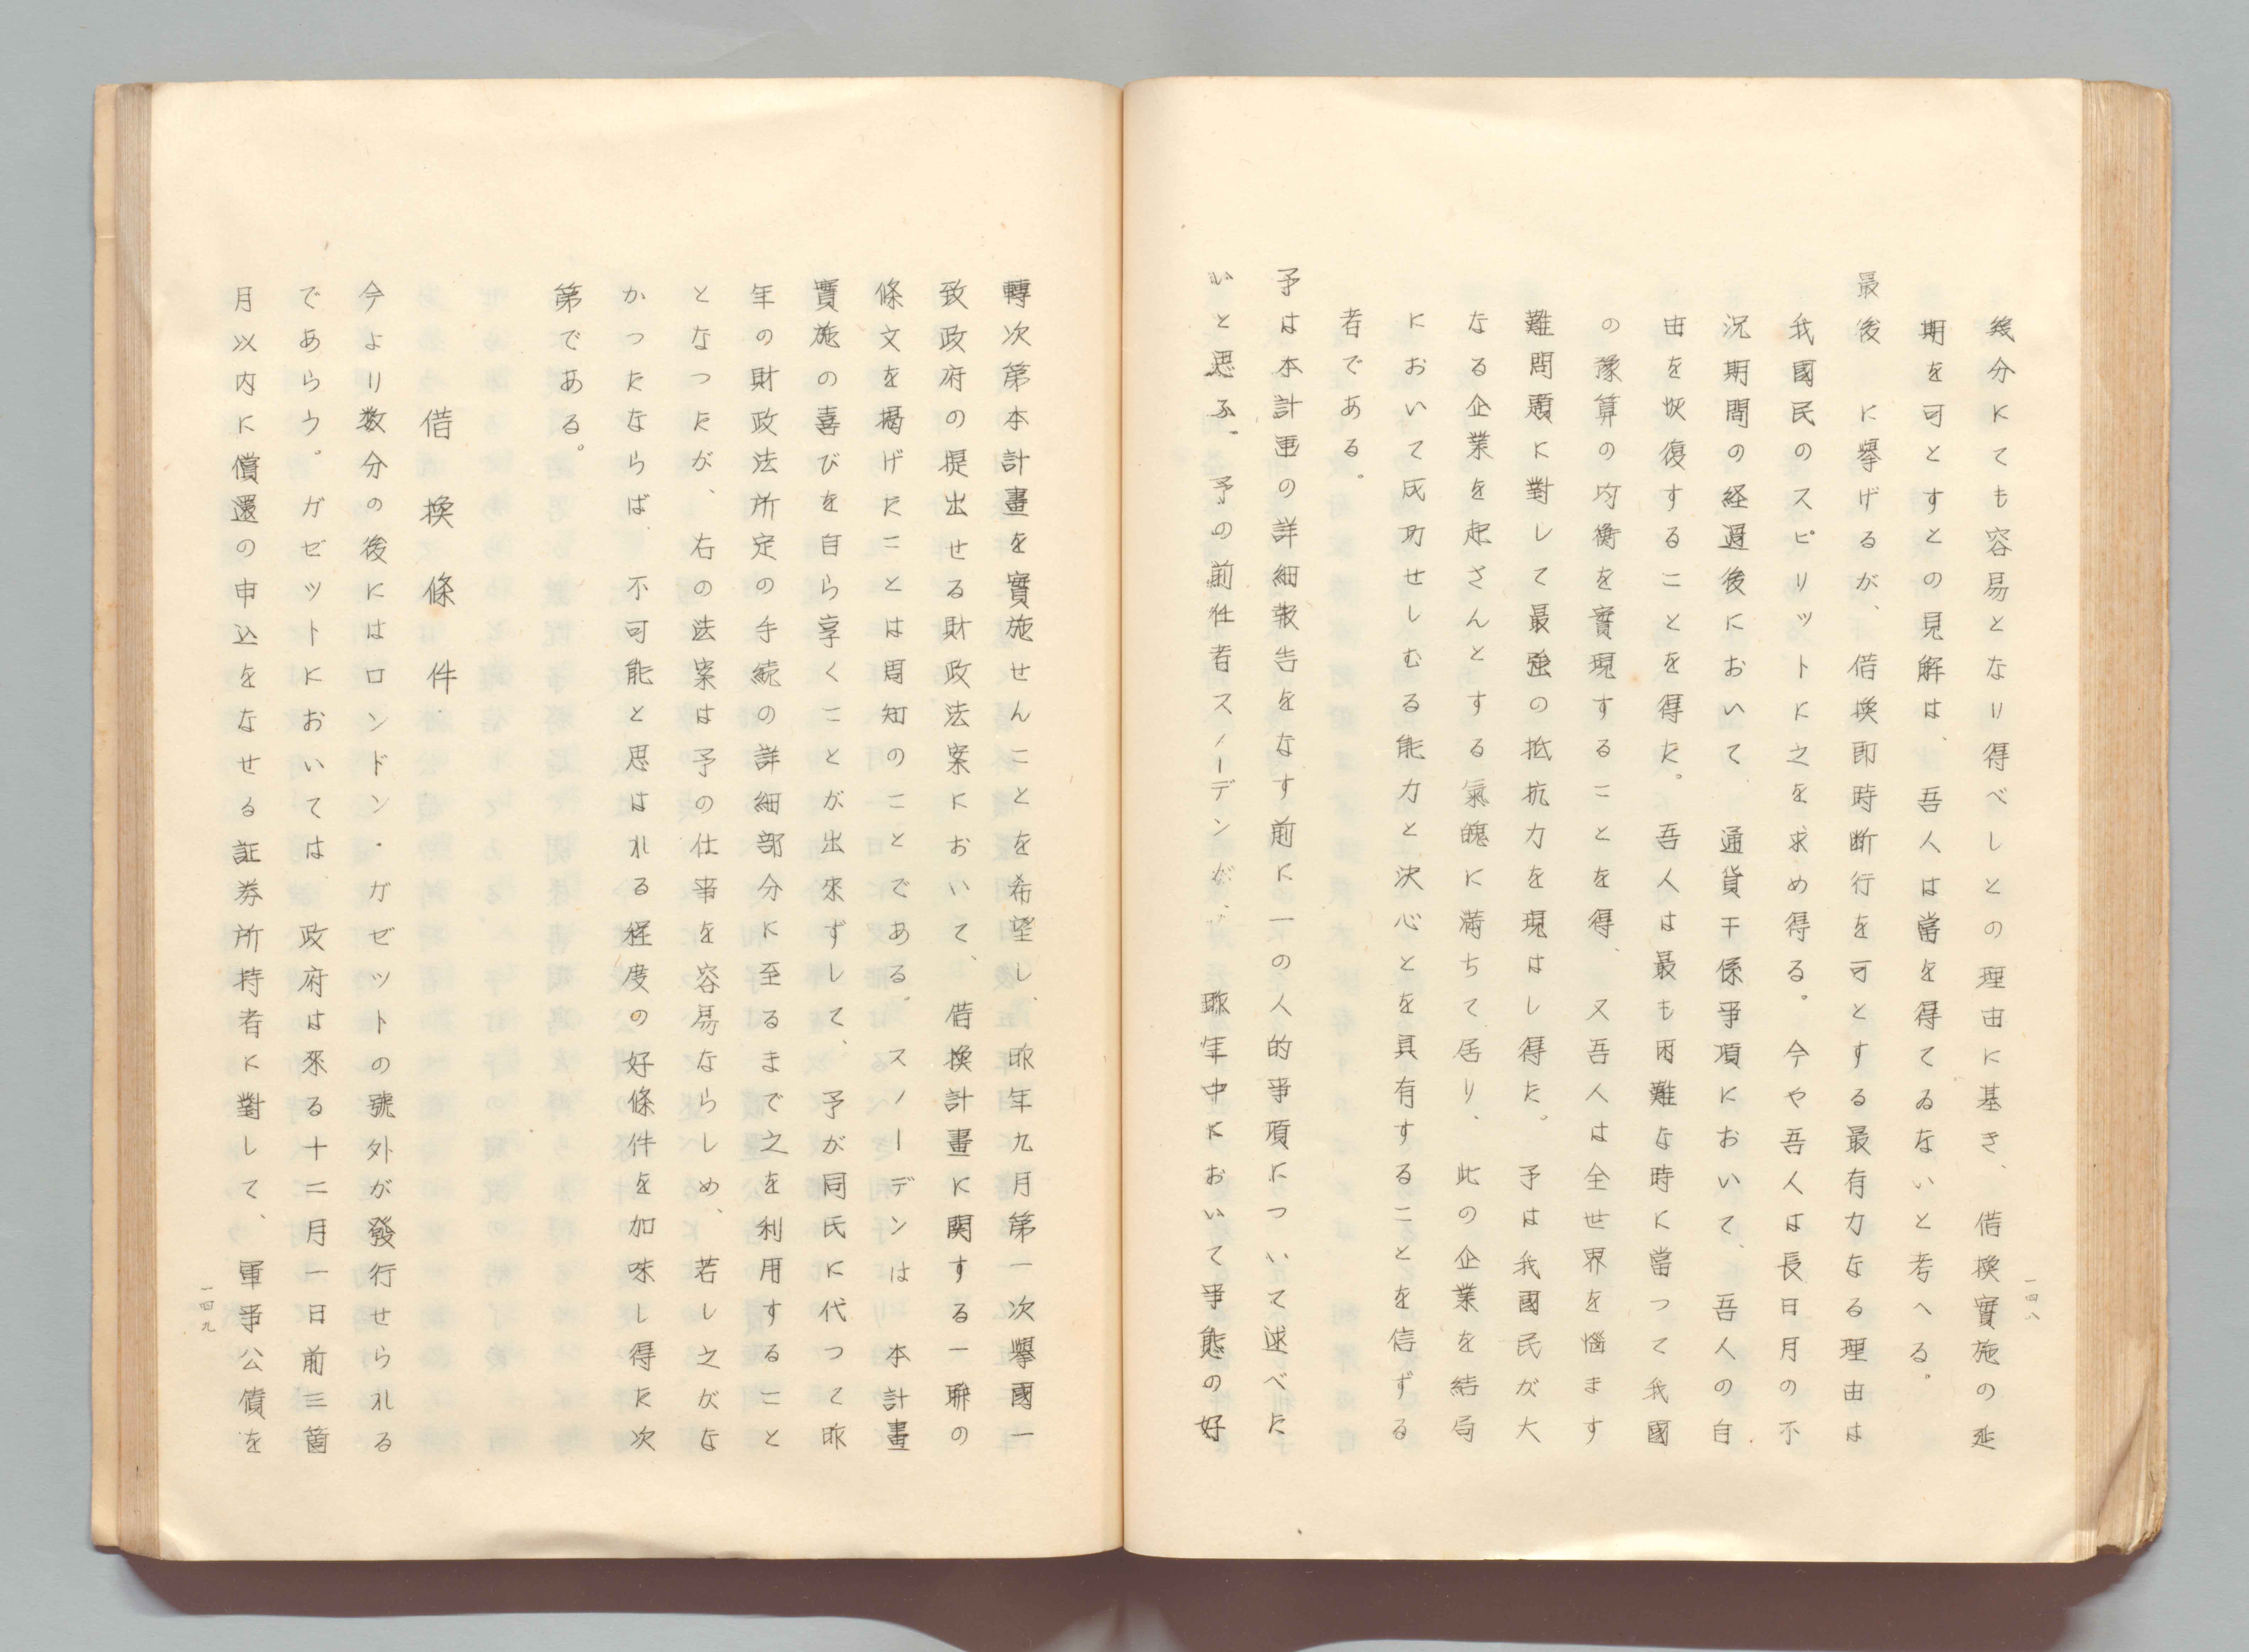 幾分にても容易となり得べしとの理由に基き、借換實施の延
期を可とすとの見解は、吾人は當を得てゐないと考へる。
最後に擧げるが、借換即時断行を可とする最有力なる理由は
我國民のスピリットに之を求め得る。今や吾人は長日月の不
況期間の経過後において、通貨干係事項において、吾人の自
由を恢復することを得た。吾人は最も困難な時に當つて我國
の豫算の均衡を實現することを得、又吾人は全世界を惱ます
難問題に對して最強の抵抗力を現はし得た。予は我國民が大
なる企業を起さんとする氣魄に満ちて居り、此の企業を結局
において成功せしむる能力と決心とを具有することを信ずる
者である。
予は本計画の詳細報告をなす前に一の人的事項について述べた
いと思ふ。予の前任者スノーデンが、昨年中において事態の好
一四八
轉次第本計畫を實施せんことを希望し、昨年九月第一次擧國一
致政府の提出せる財政法案において、借換計畫に関する一聯の
條文を掲げたことは周知のことである。スノーデンは本計畫
實施の喜びを自ら享くことが出來ずして、予が同氏に代つて昨
年の財政法所定の手続の詳細部分に至るまで之を利用すること
となつたが、右の法案は予の仕事を容易ならしめ、若し之がな
かつたならば、不可能と思はれる程度の好條件を加味し得た次
第である。
借換條件
今より数分の後にはロンドン・ガゼットの號外が發行せられる
であらう。ガゼットにおいては、政府は來る十二月一日前三箇
月以内に償還の申込をなせる証券所持者に對して、軍事公債を
一四九